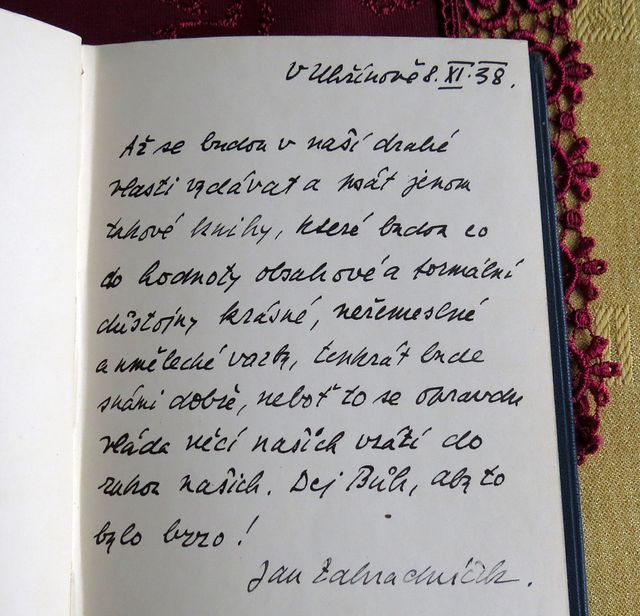 V Uhřínově 8. XI. 38.
Až se budou v naší drahé
vlasti vydávat a psát jenom
takové knihy, které budou co
do hodnoty obsahové a formální
důstojny krásné, neřemeslné
a umělecké vazby, tenkrát bude
s námi dobře, neboť to se opravdu
vláda věcí našich vrátí do
rukou našich. Dej Bůh, aby to
bylo brzo!
Jan Zahradníček.